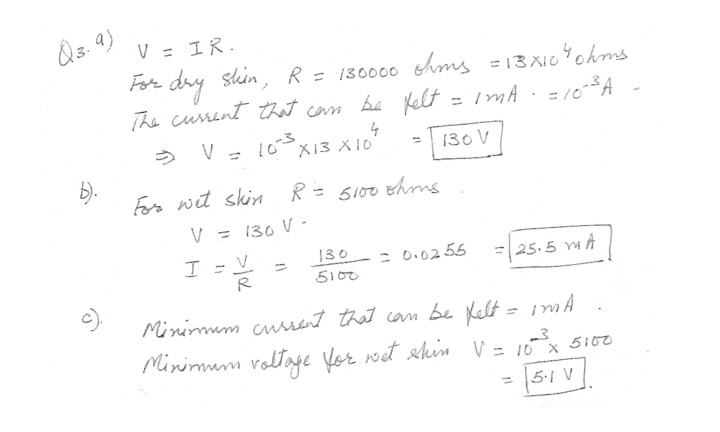 Q3. a) V = IR.
For dry skin, R = 130000 ohms = 13 X 10⁴ ohms
The current that can be felt = 1mA. = 10⁻³A.
⇒ V = 10⁻³ X 13 X 10⁴ = 130 V
b). For wet skin R = 5100 ohms.
V = 130 V.
I = V/R = 130/5100 = 0.0255 = 25.5 mA
c). Minimum current that can be felt = 1mA.
Minimum voltage for wet skin V = 10⁻³ x 5100
= 5.1 V.